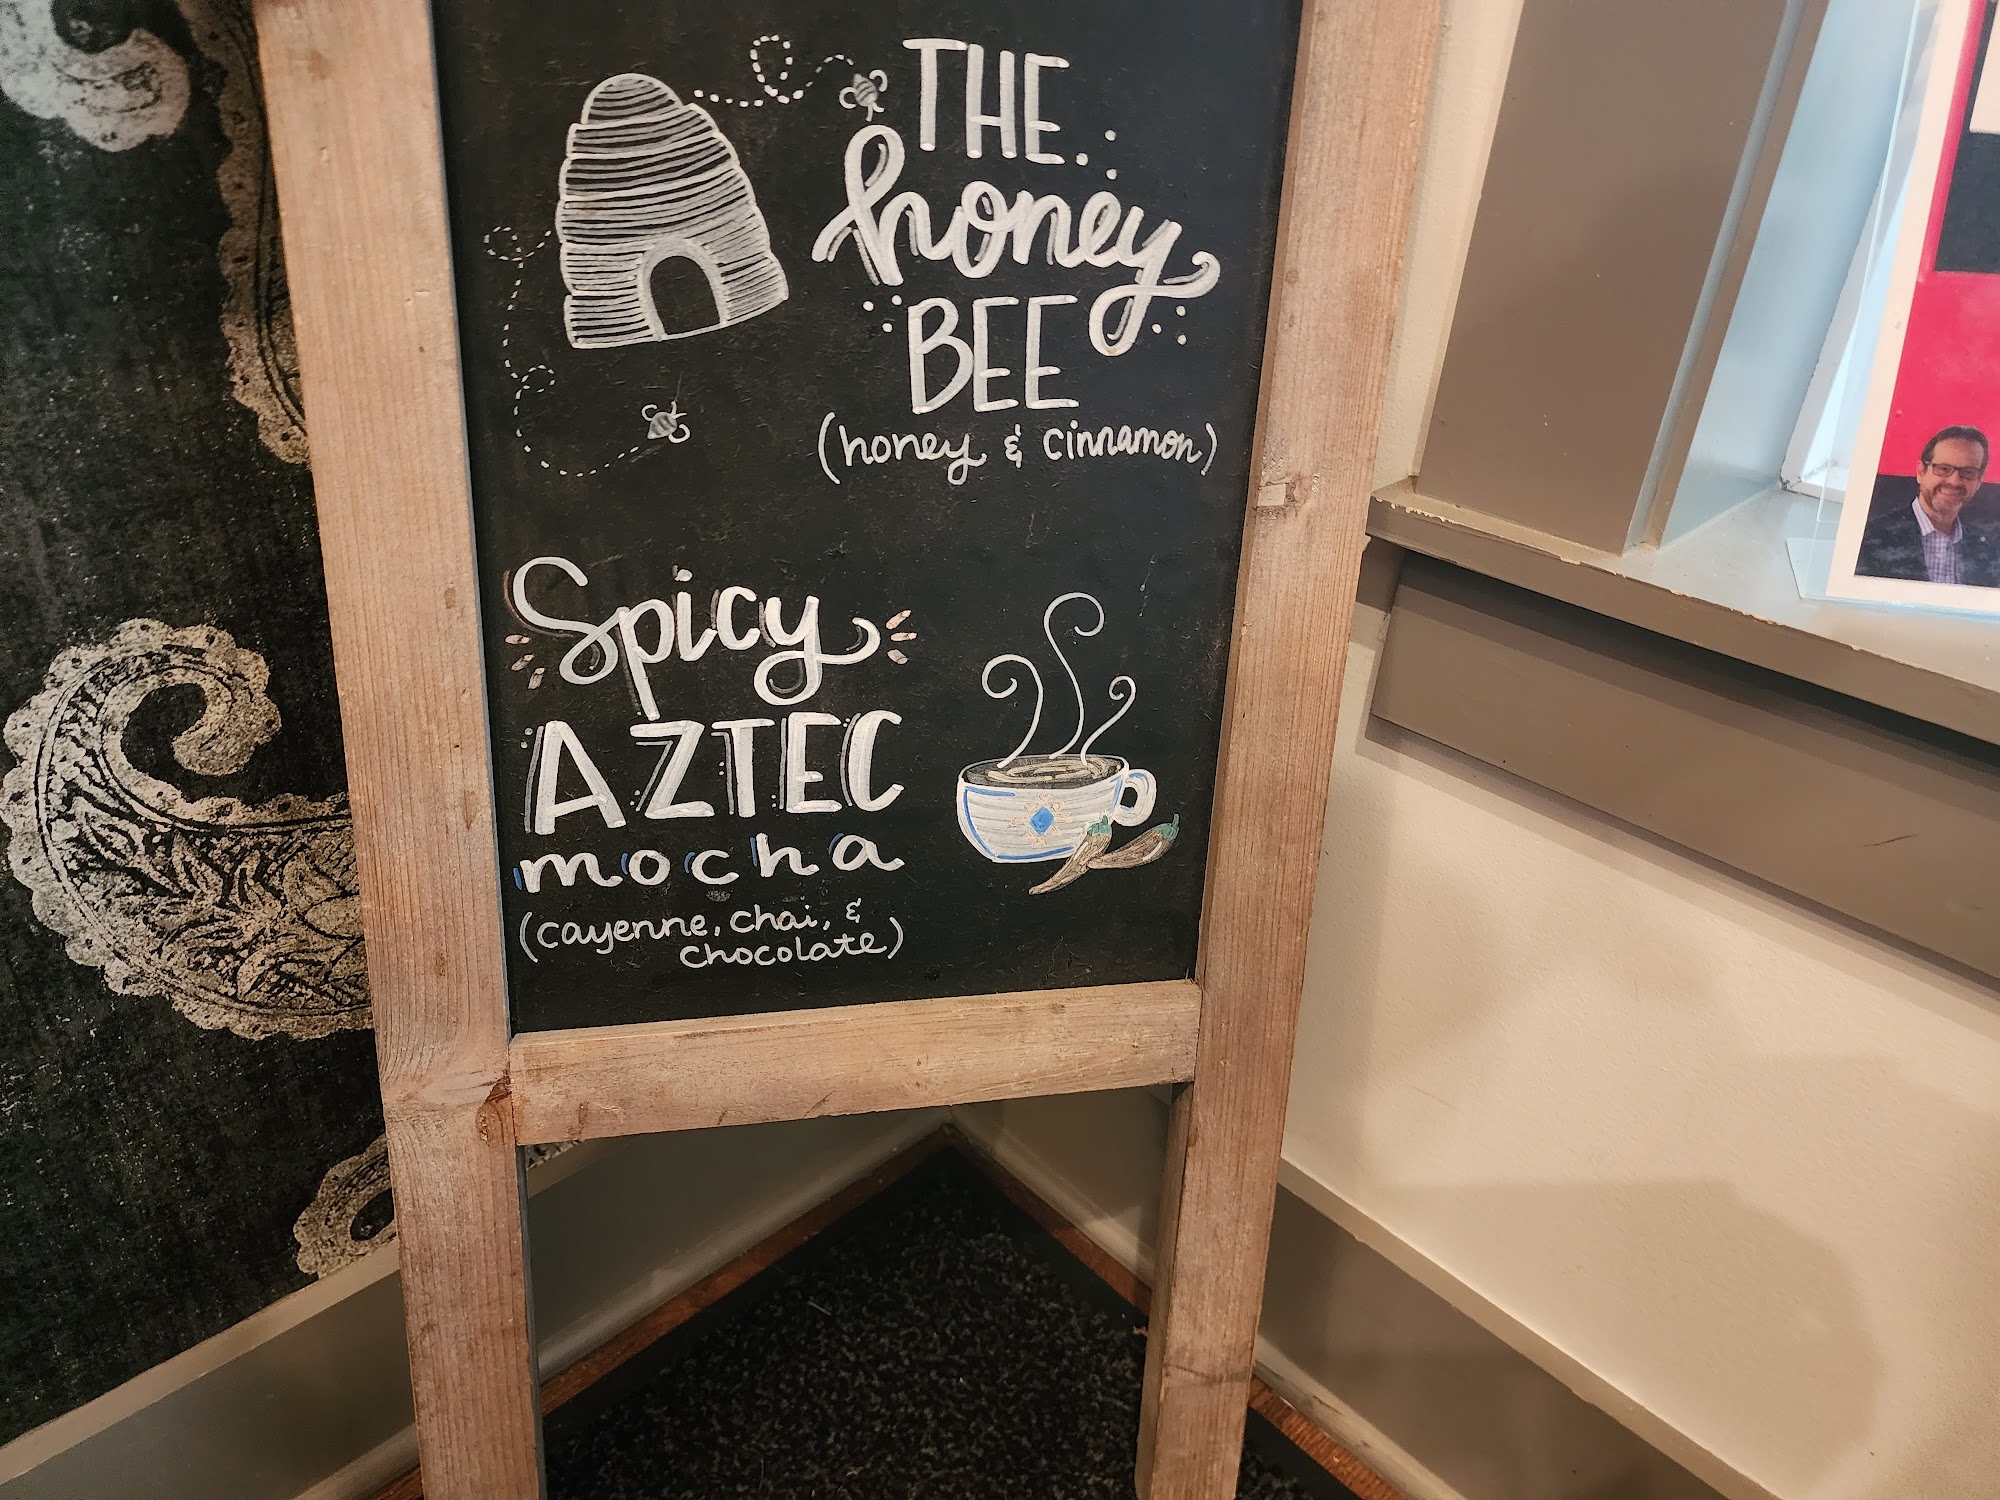 THE
honey
BEE
(honey & cinnamon)
Spicy
AZTEC
mocha
(cayenne, chai, &
chocolate)